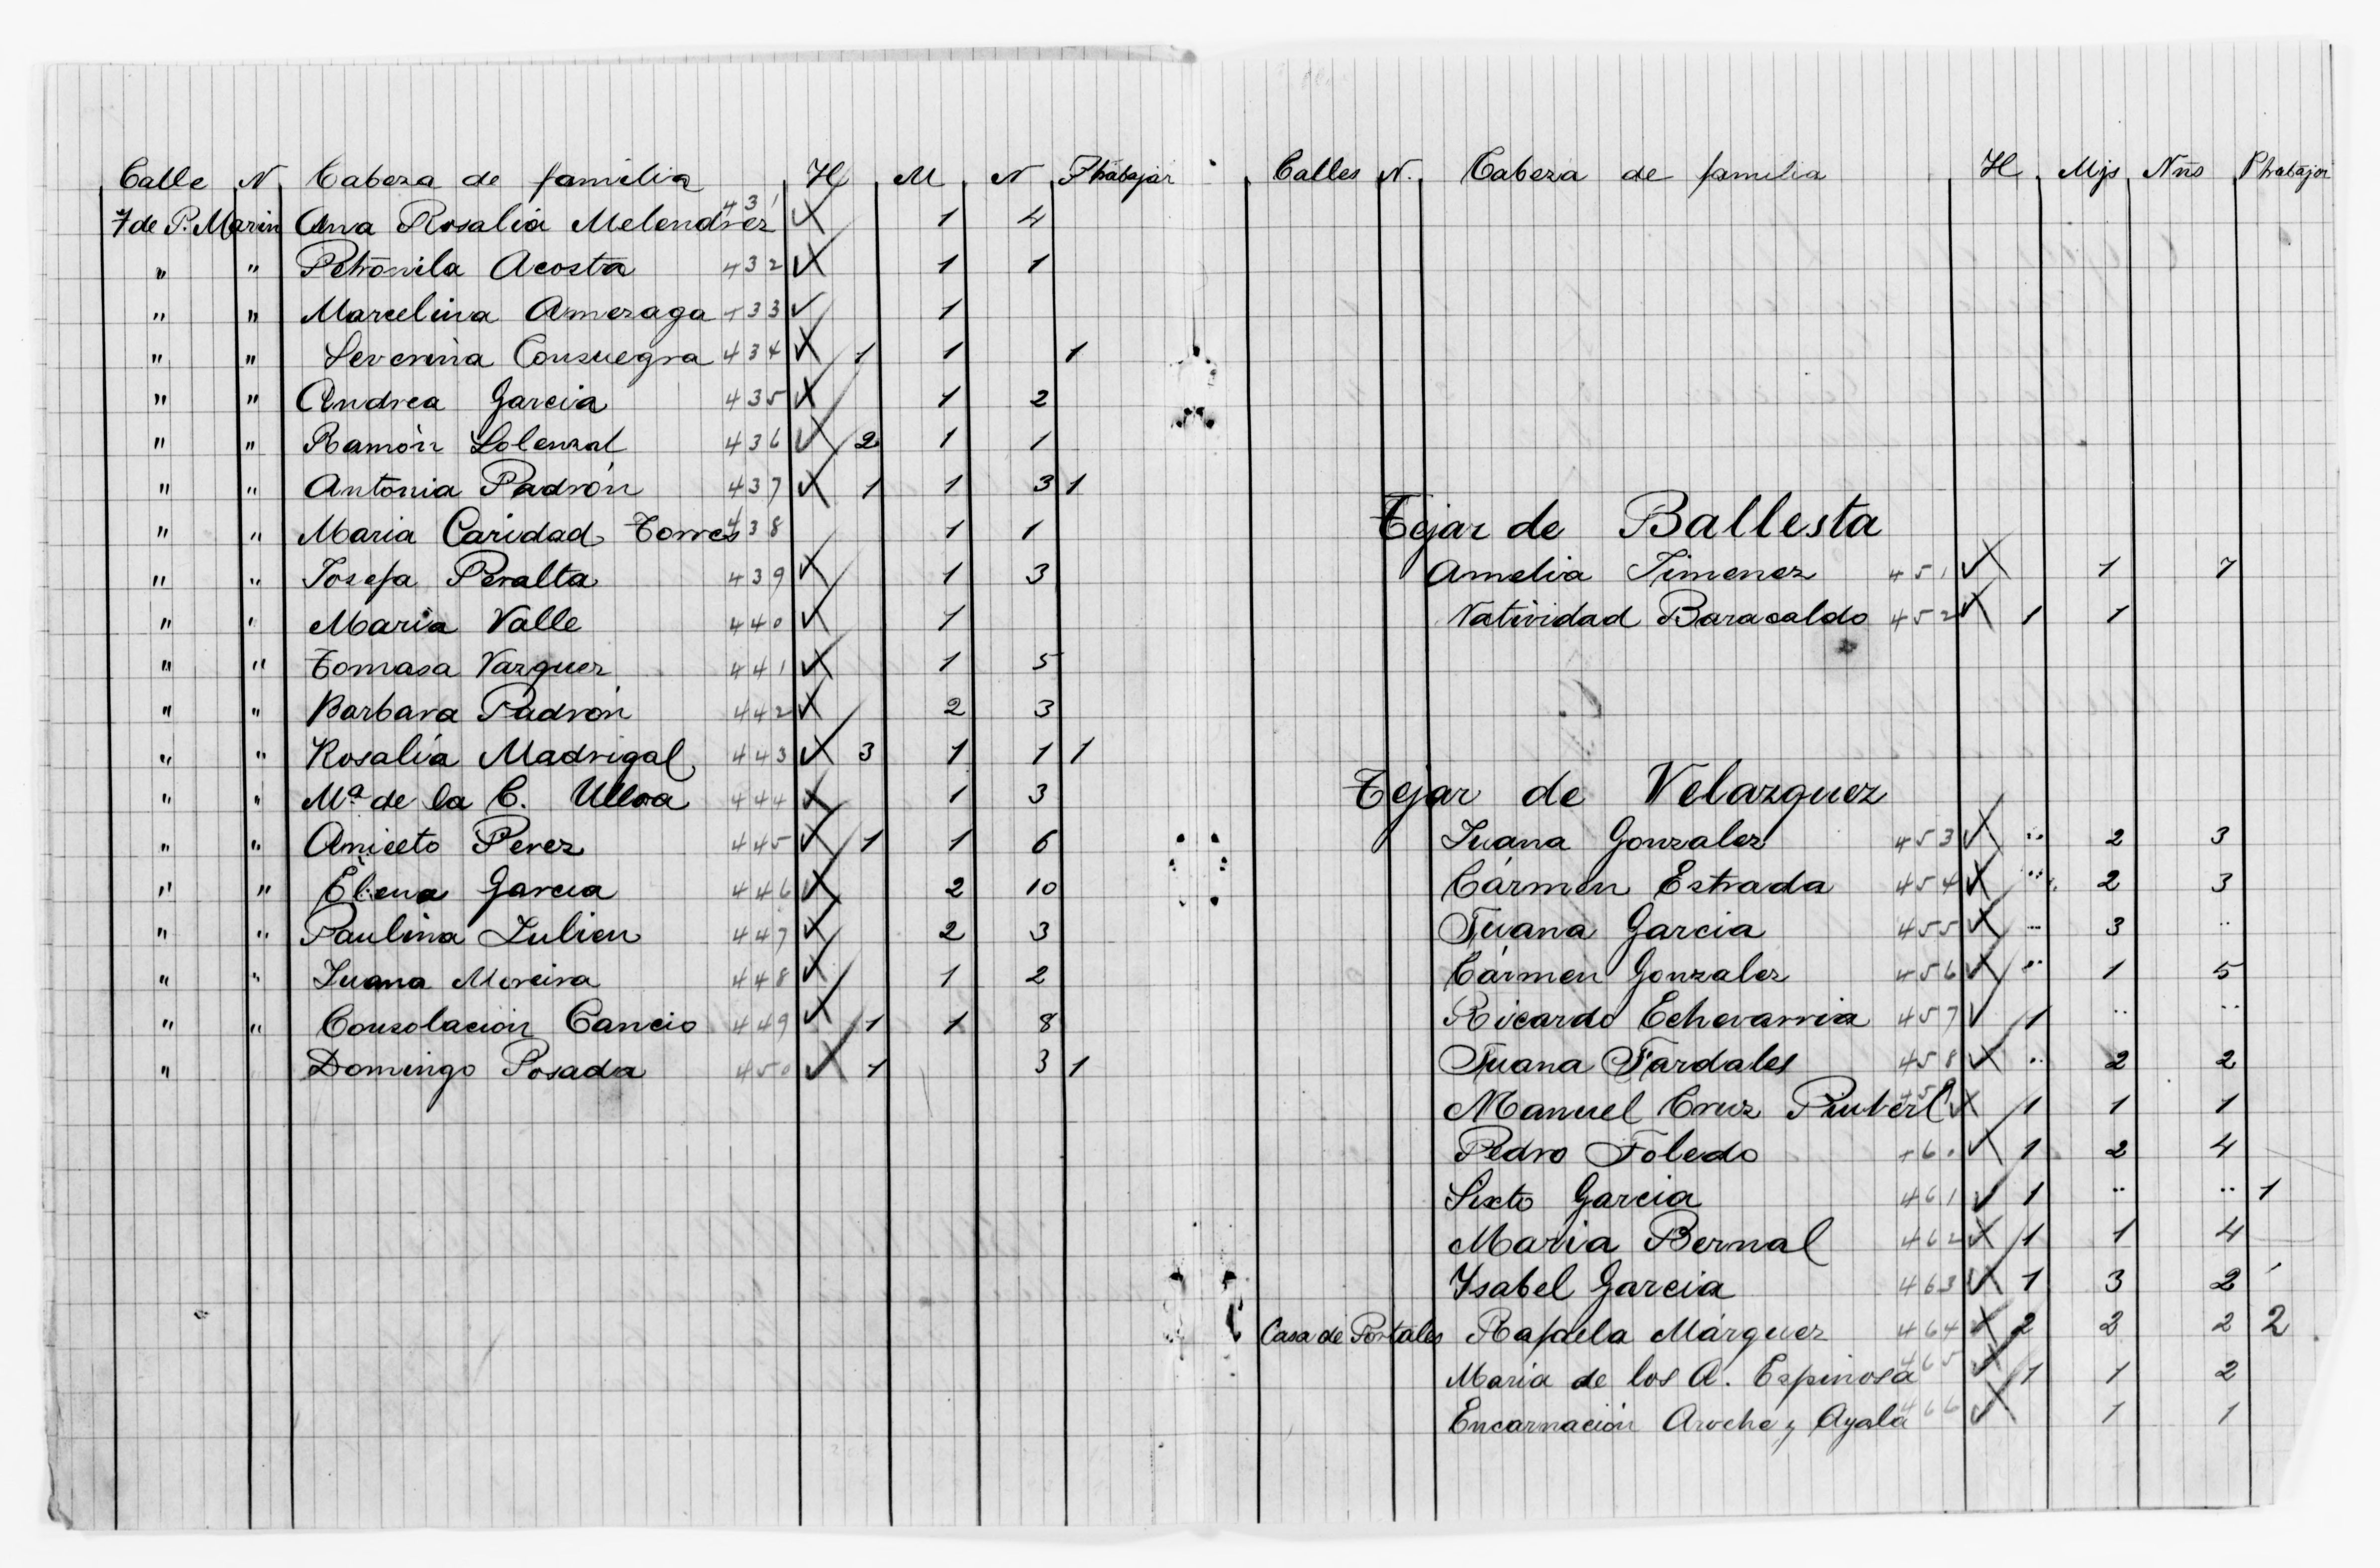 Calle N Cabeza de familia H M N P trabajar
7 de P. Marin Ana Rosalia Melendrez 431 1 4
" " Petronila Acosta 432 1 1
" " Marcelina Amezaga 433 1
" " Severina Consuegra 434 1 1 1
" " Andrea Garcia 435 1 2
" " Ramón Lolenzal 436 2 1 1
" " Antonia Padrón 437 1 1 3 1
" " Maria Caridad Torres 438 1 1
" " Josefa Peralta 439 1 3
" " Maria Valle 440 1
" " Tomasa Vazquez 441 1 5
" " Barbara Padrón 442 2 3
" " Rosalía Madrigal 443 3 1 1 1
" " Mª de la C. Ulloa 444 1 3
" " Aniceto Perez 445 1 1 6
" " Elena Garcia 446 2 10
" " Paulina Julien 447 2 3
" " Juana Moreira 448 1 2
" " Consolación Cancio 449 1 1 8
" Domingo Posada 450 1 3 1
Calles N. Cabeza de familia H Mjs Nños P trabajar
Tejar de Ballesta
Amelia Jimenez 451 1 7
Natividad Baracaldo 452 1 1
Tejar de Velazquez
Juana Gonzalez 453 .. 2 3
Cármen Estrada 454 ... 2 3
Juana Garcia 455 ... 3 ..
Cármen Gonzalez 456 .. 1 5
Ricardo Echevarria 457 1 .. ..
Juana Fardales 458 .. 2 2
Manuel Cruz 459 1 1 1
Pedro Toledo 460 1 2 4
Sixto Garcia 461 1 .. .. 1
Maria Bernal 462 1 1 4
Ysabel Garcia 463 1 3 2
Casa de Portales Rafaela Márquez 464 2 2 2 2
Maria de los A. Espinosa 465 1 1 2
Encarnación Aroche y Ayala 466 1 1